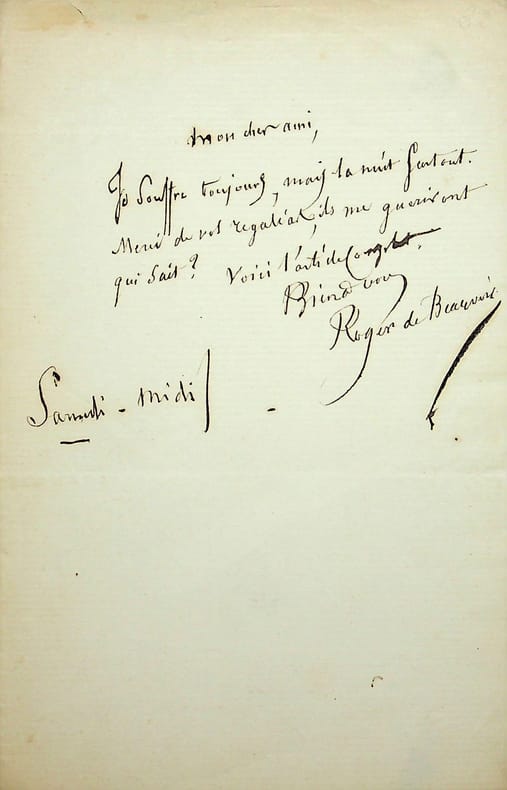 Mon cher ami,
Je souffre toujours, mais la nuit surtout.
Merci de vos regalias, ils me guériront
qui sait? Voici l'article complet.
Bien à vous
Roger de Beauvoir
Samedi - midi